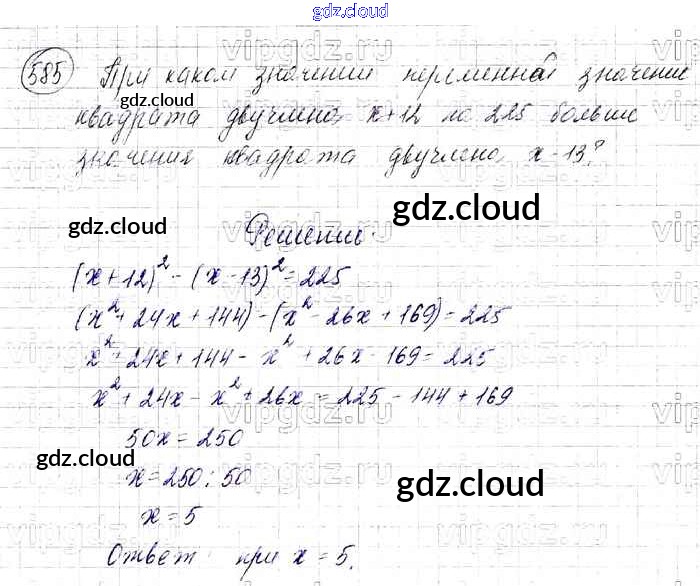 gdz.cloud
585 При каком значении переменной значение
gdz.cloud
квадрата двучлена x+12 на 225 больше
значения квадрата двучлена x-13?
gdz.cloud
gdz.cloud
Решение.
(x+12)² - (x-13)² = 225
(x² + 24x + 144) - (x² - 26x + 169) = 225
x² + 24x + 144 - x² + 26x - 169 = 225
x² + 24x - x² + 26x = 225 - 144 + 169
50x = 250
gdz.cloud
x = 250 : 50
gdz.cloud
x = 5
Ответ: при x = 5.